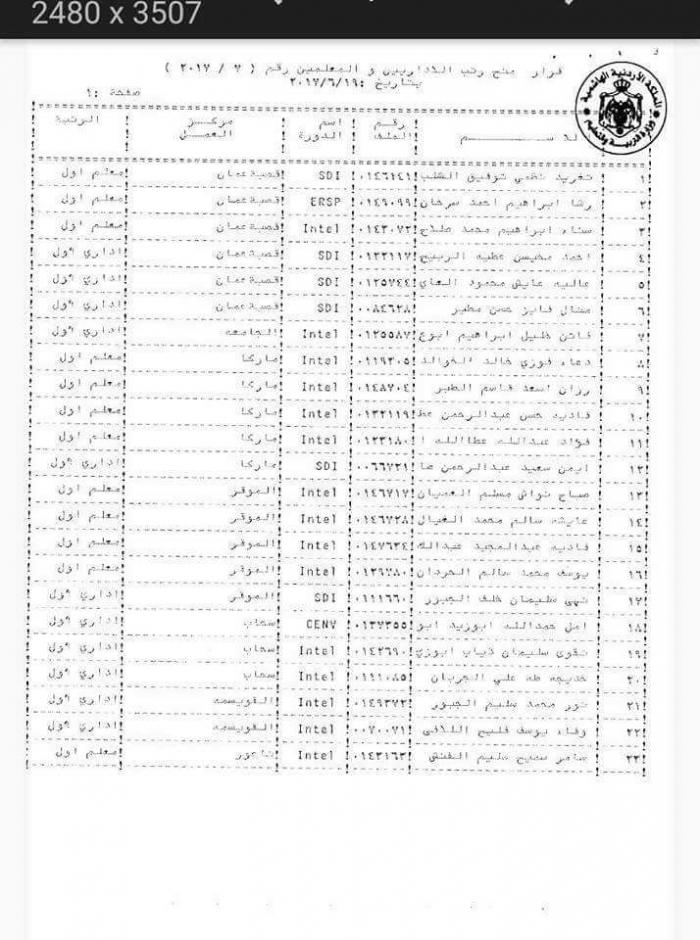 2480 x 3507
قرار منح رتب الاداريين و المعلمين رقم ( ٧ / ٢٠١٧ )
بتاريخ :٢٠١٧/٦/١٩
صفحة :١
الاســـــــــم رقم الملف اسم الدورة مركز العمل الرتبة
١ تغريد نظمي توفيق ٠١٤٦١٤١ SDI قصبة عمان معلم اول
٢ رشا ابراهيم احمد سرحان ٠١٤٩٠٩٩ ERSP قصبة عمان معلم اول
٣ سناء ابراهيم محمد صلاح ٠١٤٣٠٧٢ Intel قصبة عمان معلم اول
٤ احمد محيسن عطيه الربيح ٠١٣٣١١٧ SDI قصبة عمان اداري اول
٥ عاليه عايش محمود العاي ٠١٢٥٧٤٤ SDI قصبة عمان اداري اول
٦ منال فايز حسن مطير ٠٠٨٤٦٢٨ SDI قصبة عمان اداري اول
٧ فاتن خليل ابراهيم ابوع ٠١٢٥٥٨٧ Intel الجامعه اداري اول
٨ دعاء فوزي خالد الخوالد ٠١١٩٣٠٥ Intel ماركا معلم اول
٩ رزان اسعد قاسم ٠١٤٨٧٠٤ Intel ماركا معلم اول
١٠ فاديه حسن عبدالرحمن عط ٠١٣٢١١٩ Intel ماركا معلم اول
١١ فؤاد عبدالله عطاالله ا ٠١٢٣١٨٠ Intel ماركا معلم اول
١٢ ايمن سعيد عبدالرحمن ٠٠٦٦٧٢١ SDI ماركا اداري اول
١٣ صباح نواش مسلم ٠١٤٦٧١٧ Intel الموقر معلم اول
١٤ عايشه سالم محمد ٠١٤٦٧٢٨ Intel الموقر معلم اول
١٥ فاديه عبدالمجيد عبدالك ٠١٤٧٦٣٤ Intel الموقر معلم اول
١٦ يوسف محمد سالم الحردان ٠١٣٩٧٨٠ Intel الموقر معلم اول
١٧ نهى سليمان خلف الجبور ٠١١١٦٦٠ SDI الموقر اداري اول
١٨ امل حمدالله ابوزيد ابو ٠١٣٧٣٥٥ CENV سحاب اداري اول
١٩ تقوى سليمان ذياب ابوزي ٠١٤٢٦٩٠ Intel سحاب اداري اول
٢٠ خديجه طه علي ٠١١١٠٨٥ Intel سحاب اداري اول
٢١ نور محمد سليم الجبور ٠١٤٩٣٧٢ Intel القويسمه اداري اول
٢٢ وفاء يوسف فليح اللافي ٠٠٧٠٠٧١ Intel القويسمه اداري اول
٢٣ سامر سميح سليم ٠١٤٣١٦٣ Intel ناعور معلم اول